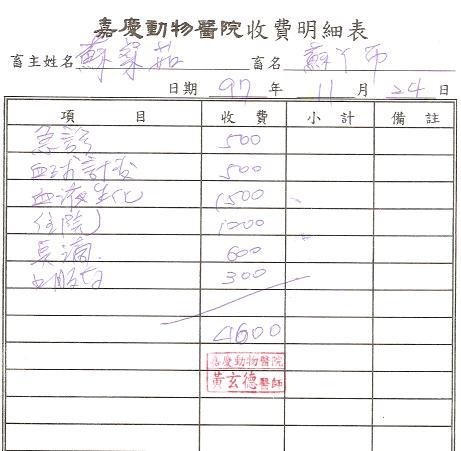 嘉慶動物醫院收費明細表
畜主姓名 蘇 茹 畜名 蘇ㄚ
日期 97 年 11 月 24 日
項目 收費 小計 備註
急診 500
血球計 500
血液生化 1500
住院 1000
點滴 600
口服 300
4600
嘉慶動物醫院
黃玄德醫師